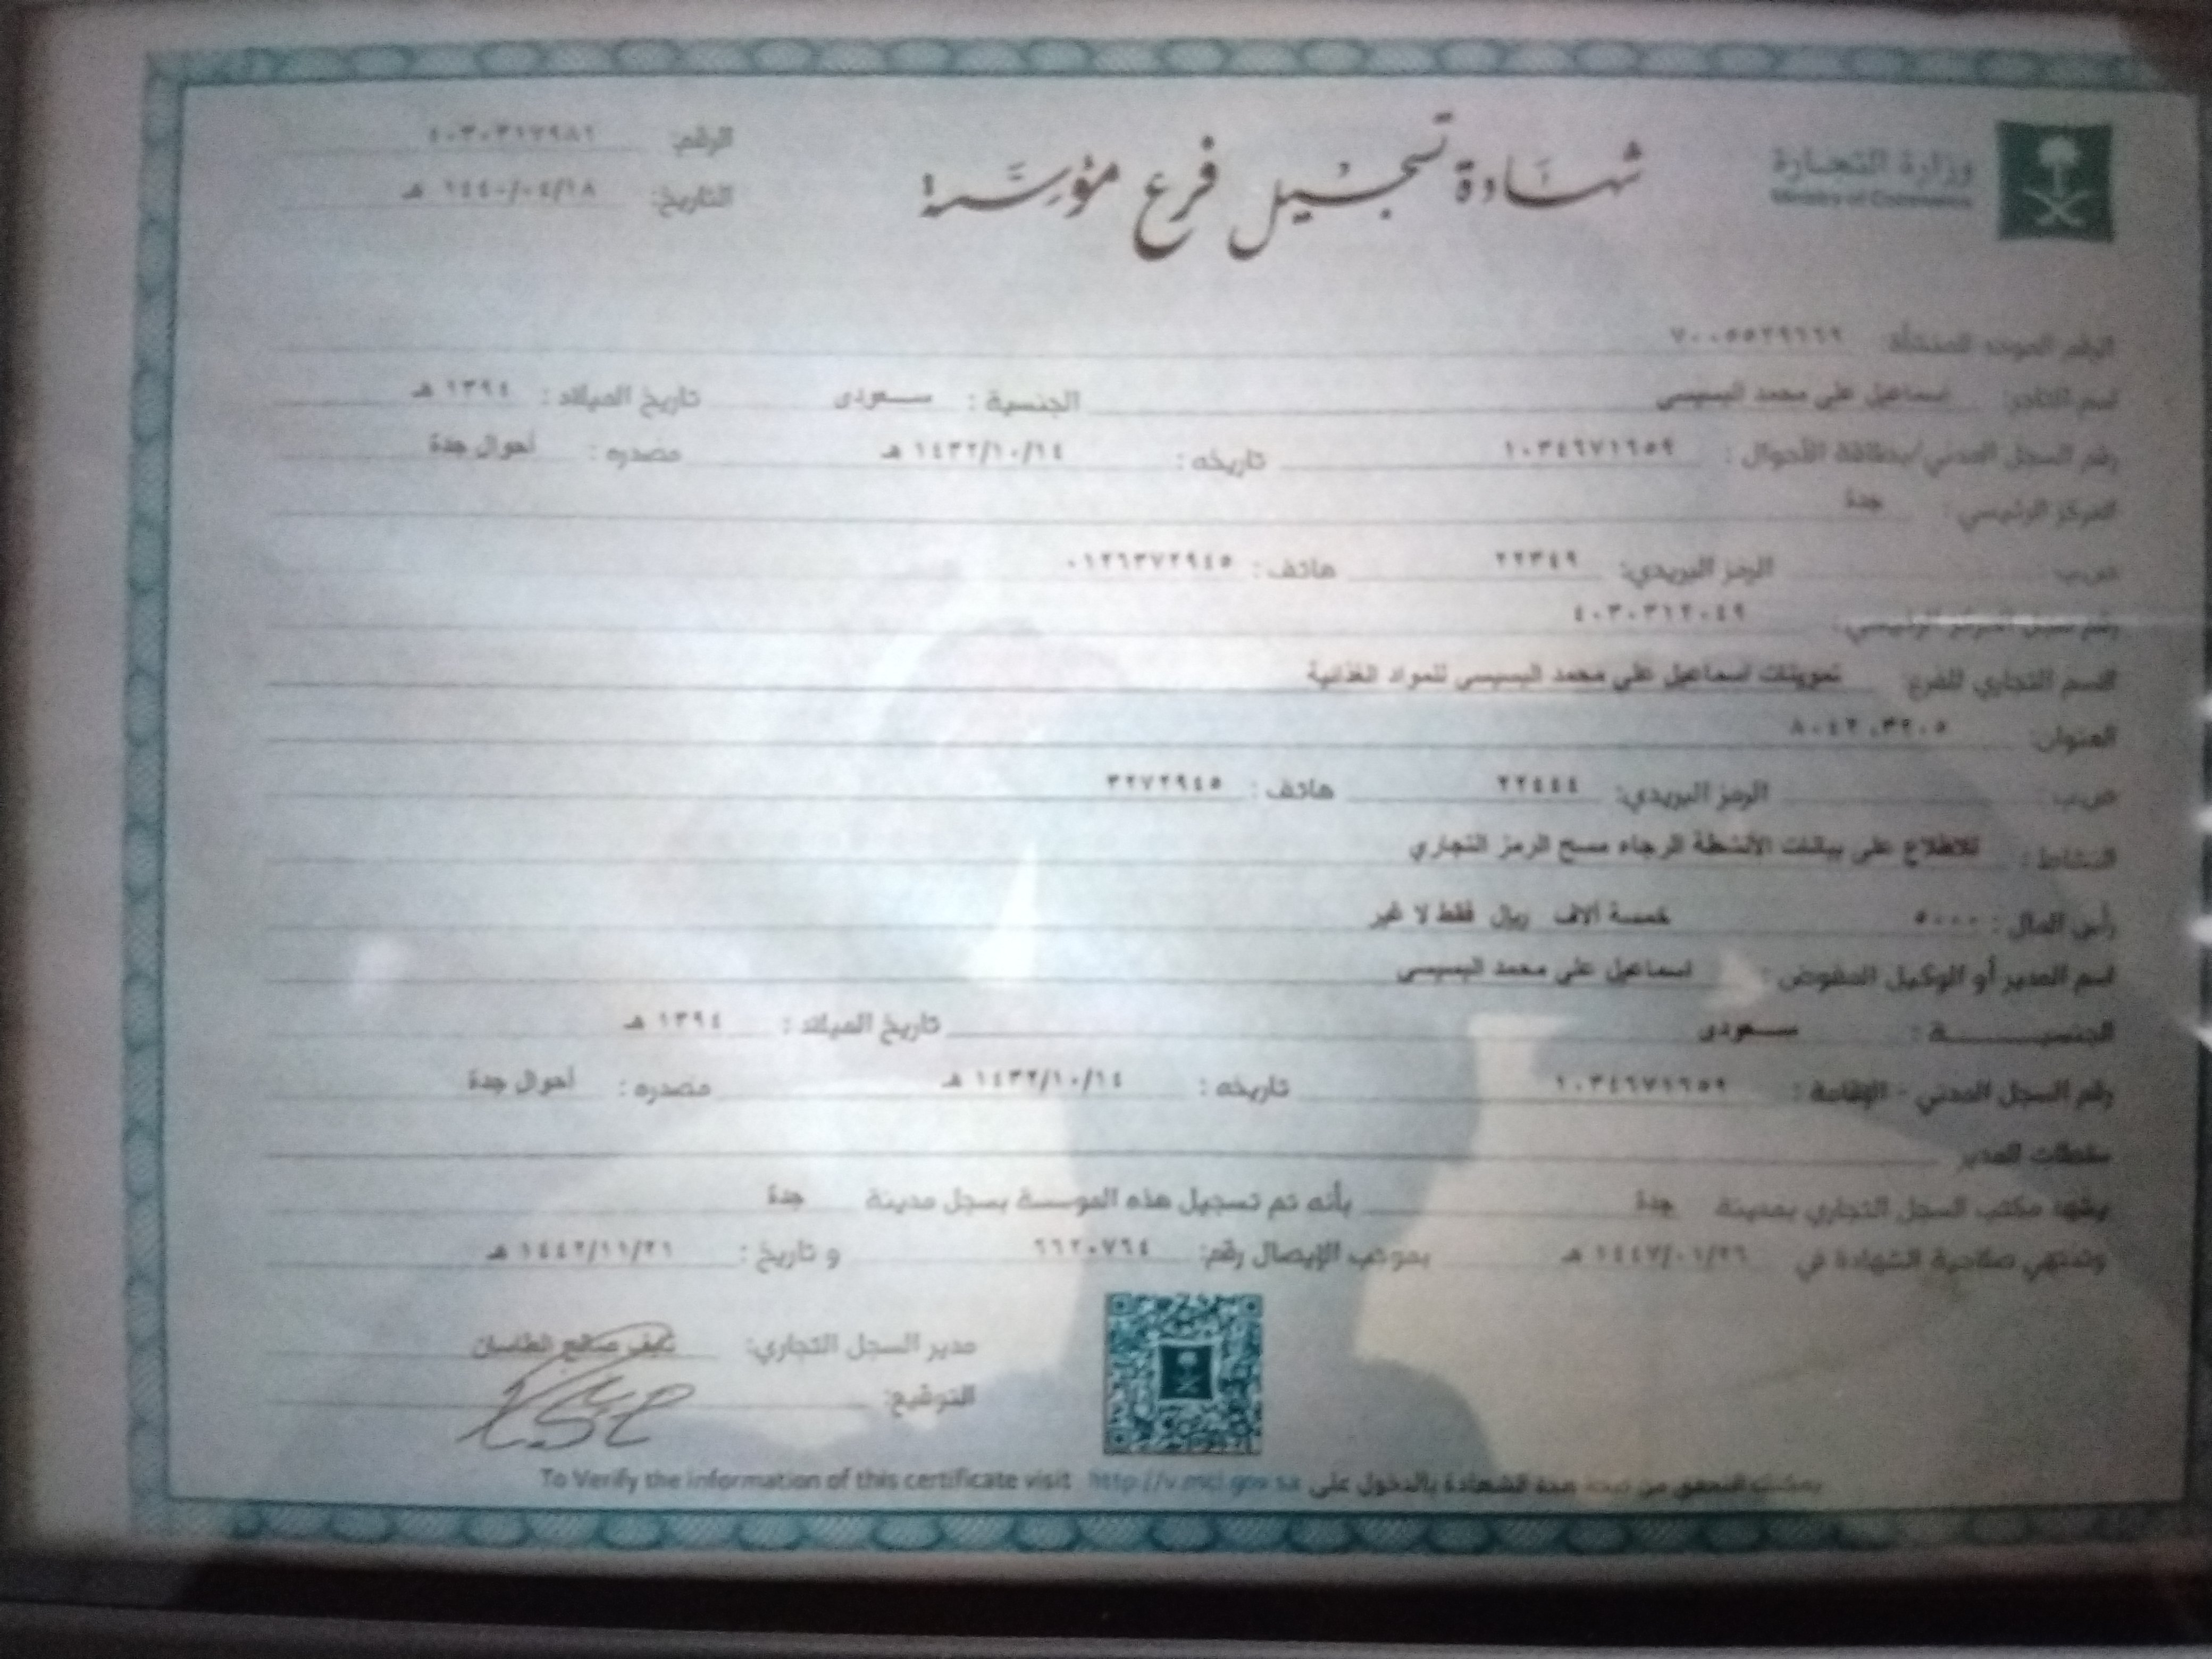 وزارة التجارة
Ministry of Commerce
شهادة تسجيل فرع مؤسسة
الرقم: ٤٠٣٠٣١٧٩٨٢
التاريخ: ١٤٤٠/٠٤/١٨ هـ
الرقم الموحد للمنشأة: ٧٠٠٥٥٢٩٦٦٩
اسم التاجر: اسماعيل على محمد البسيسى الجنسية : سعودى تاريخ الميلاد : ١٣٩٤ هـ
رقم السجل المدني/بطاقة الأحوال : ١٠٣٤٦٧١٦٥٩ تاريخه : ١٤٣٢/١٠/١٤ هـ مصدره : أحوال جدة
المركز الرئيسي : جدة
ص.ب: الرمز البريدي: ٢٢٣٤٩ هاتف : ٠١٢٦٣٧٢٩٤٥
رقم سجل المركز الرئيسي : ٤٠٣٠٣١٢٠٤٩
الاسم التجاري للفرع: تموينات اسماعيل على محمد البسيسى للمواد الغذائية
العنوان: ٨٠٤٢ ،٣٢٠٥
ص.ب: الرمز البريدي: ٢٢٤٤٤ هاتف : ٣٢٧٢٩٤٥
النشاط : للاطلاع على بيانات الأنشطة الرجاء مسح الرمز التجاري
رأس المال : ٥٠٠٠ خمسة آلاف ريال فقط لا غير
اسم المدير أو الوكيل المفوض : اسماعيل على محمد البسيسى
الجنسيـــــة : سعودى تاريخ الميلاد : ١٣٩٤ هـ
رقم السجل المدني - الإقامة : ١٠٣٤٦٧١٦٥٩ تاريخه : ١٤٣٢/١٠/١٤ هـ مصدره : أحوال جدة
سلطات المدير
يشهد مكتب السجل التجاري بمدينة جدة بأنه تم تسجيل هذه الموسسة بسجل مدينة جدة
وتنتهي صلاحية الشهادة في ١٤٤٧/٠١/٢٦ هـ بموجب الإيصال رقم: ٦٦٢٠٧٦٤ و تاريخ : ١٤٤٢/١١/٢١ هـ
مدير السجل التجاري: نايف صالح الطاسان
التوقيع:
يمكنك التحقق من صحة هذه الشهادة بالدخول على http://v.mci.gov.sa To Verify the information of this certificate visit